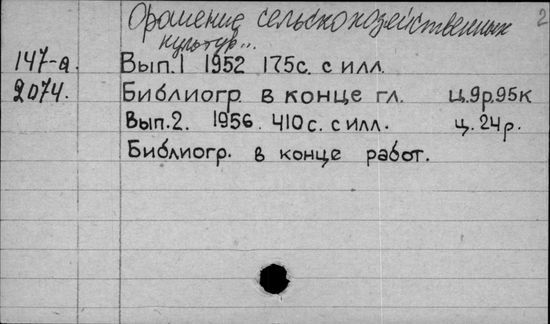 Орошение сельскохозяйственных 2
культур...
147-а. Вып.1 1952 175с. с илл.
2074. Библиогр. в конце гл. ц.9р.95к
Вып.2. 1956. 410с. с илл. ц.24р.
Библиогр. в конце работ.